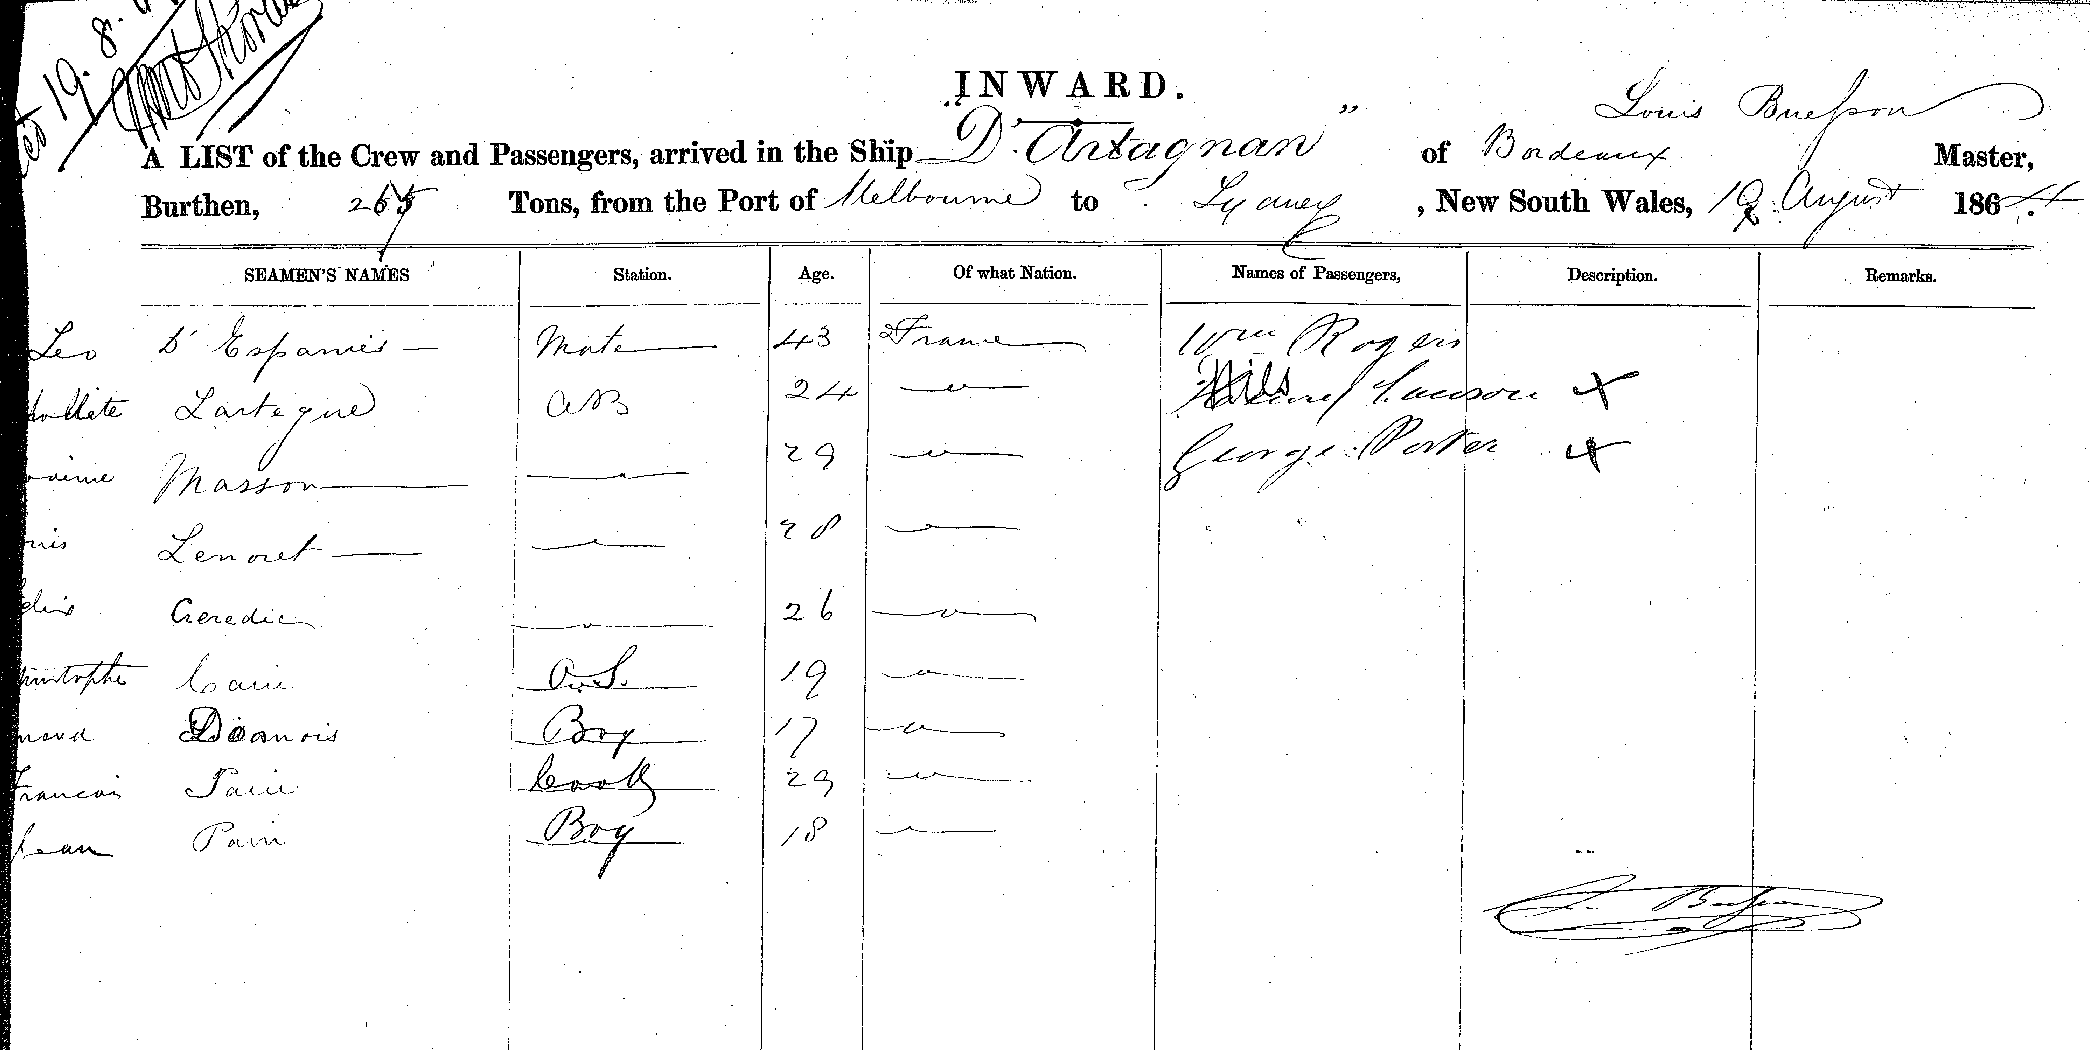 19. 8.
INWARD.
Louis Buesson
A LIST of the Crew and Passengers, arrived in the Ship "D'Artagnan" of Bordeaux Master,
Burthen, Tons, from the Port of Melbourne to Sydney, New South Wales, 19 August 1864.
SEAMEN'S NAMES Station. Age. Of what Nation. Names of Passengers, Description. Remarks.
Leo D'Espanies Mate 43 France Wm Rogers
Lartegue AB 24 " Lawson x
Masson " 29 " George Porter x
Lenoret " 28 "
Geredic " 26 "
Carie O.S. 19 "
Dianois Boy 17 "
Francois Paiu Cook 29 "
Jean Pain Boy 18 "